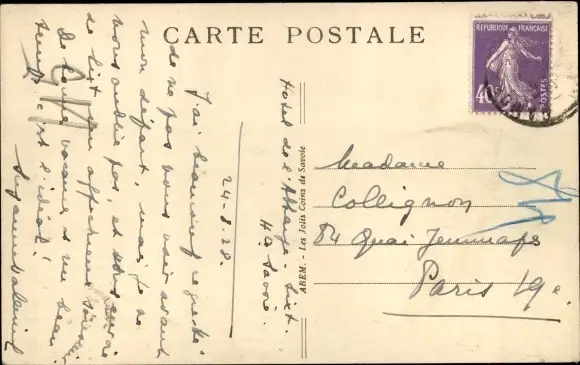 CARTE POSTALE
REPUBLIQUE FRANÇAISE
40c
POSTES
ABEM. - Les Jolis Coins de Savoie
Hotel de l'Abbaye - Sixt -
Hte Savoie.
24-8.28.
J'ai beaucoup regretté
de ne pas vous voir avant
mon départ, mais je ne
vous oublie pas, et vous envoie
de Sixt un affectueux souvenir
De vacances un beau
temps c'est l'idéal!
Madame
Collignon
84 Quai Jemmapes
Paris 19e.